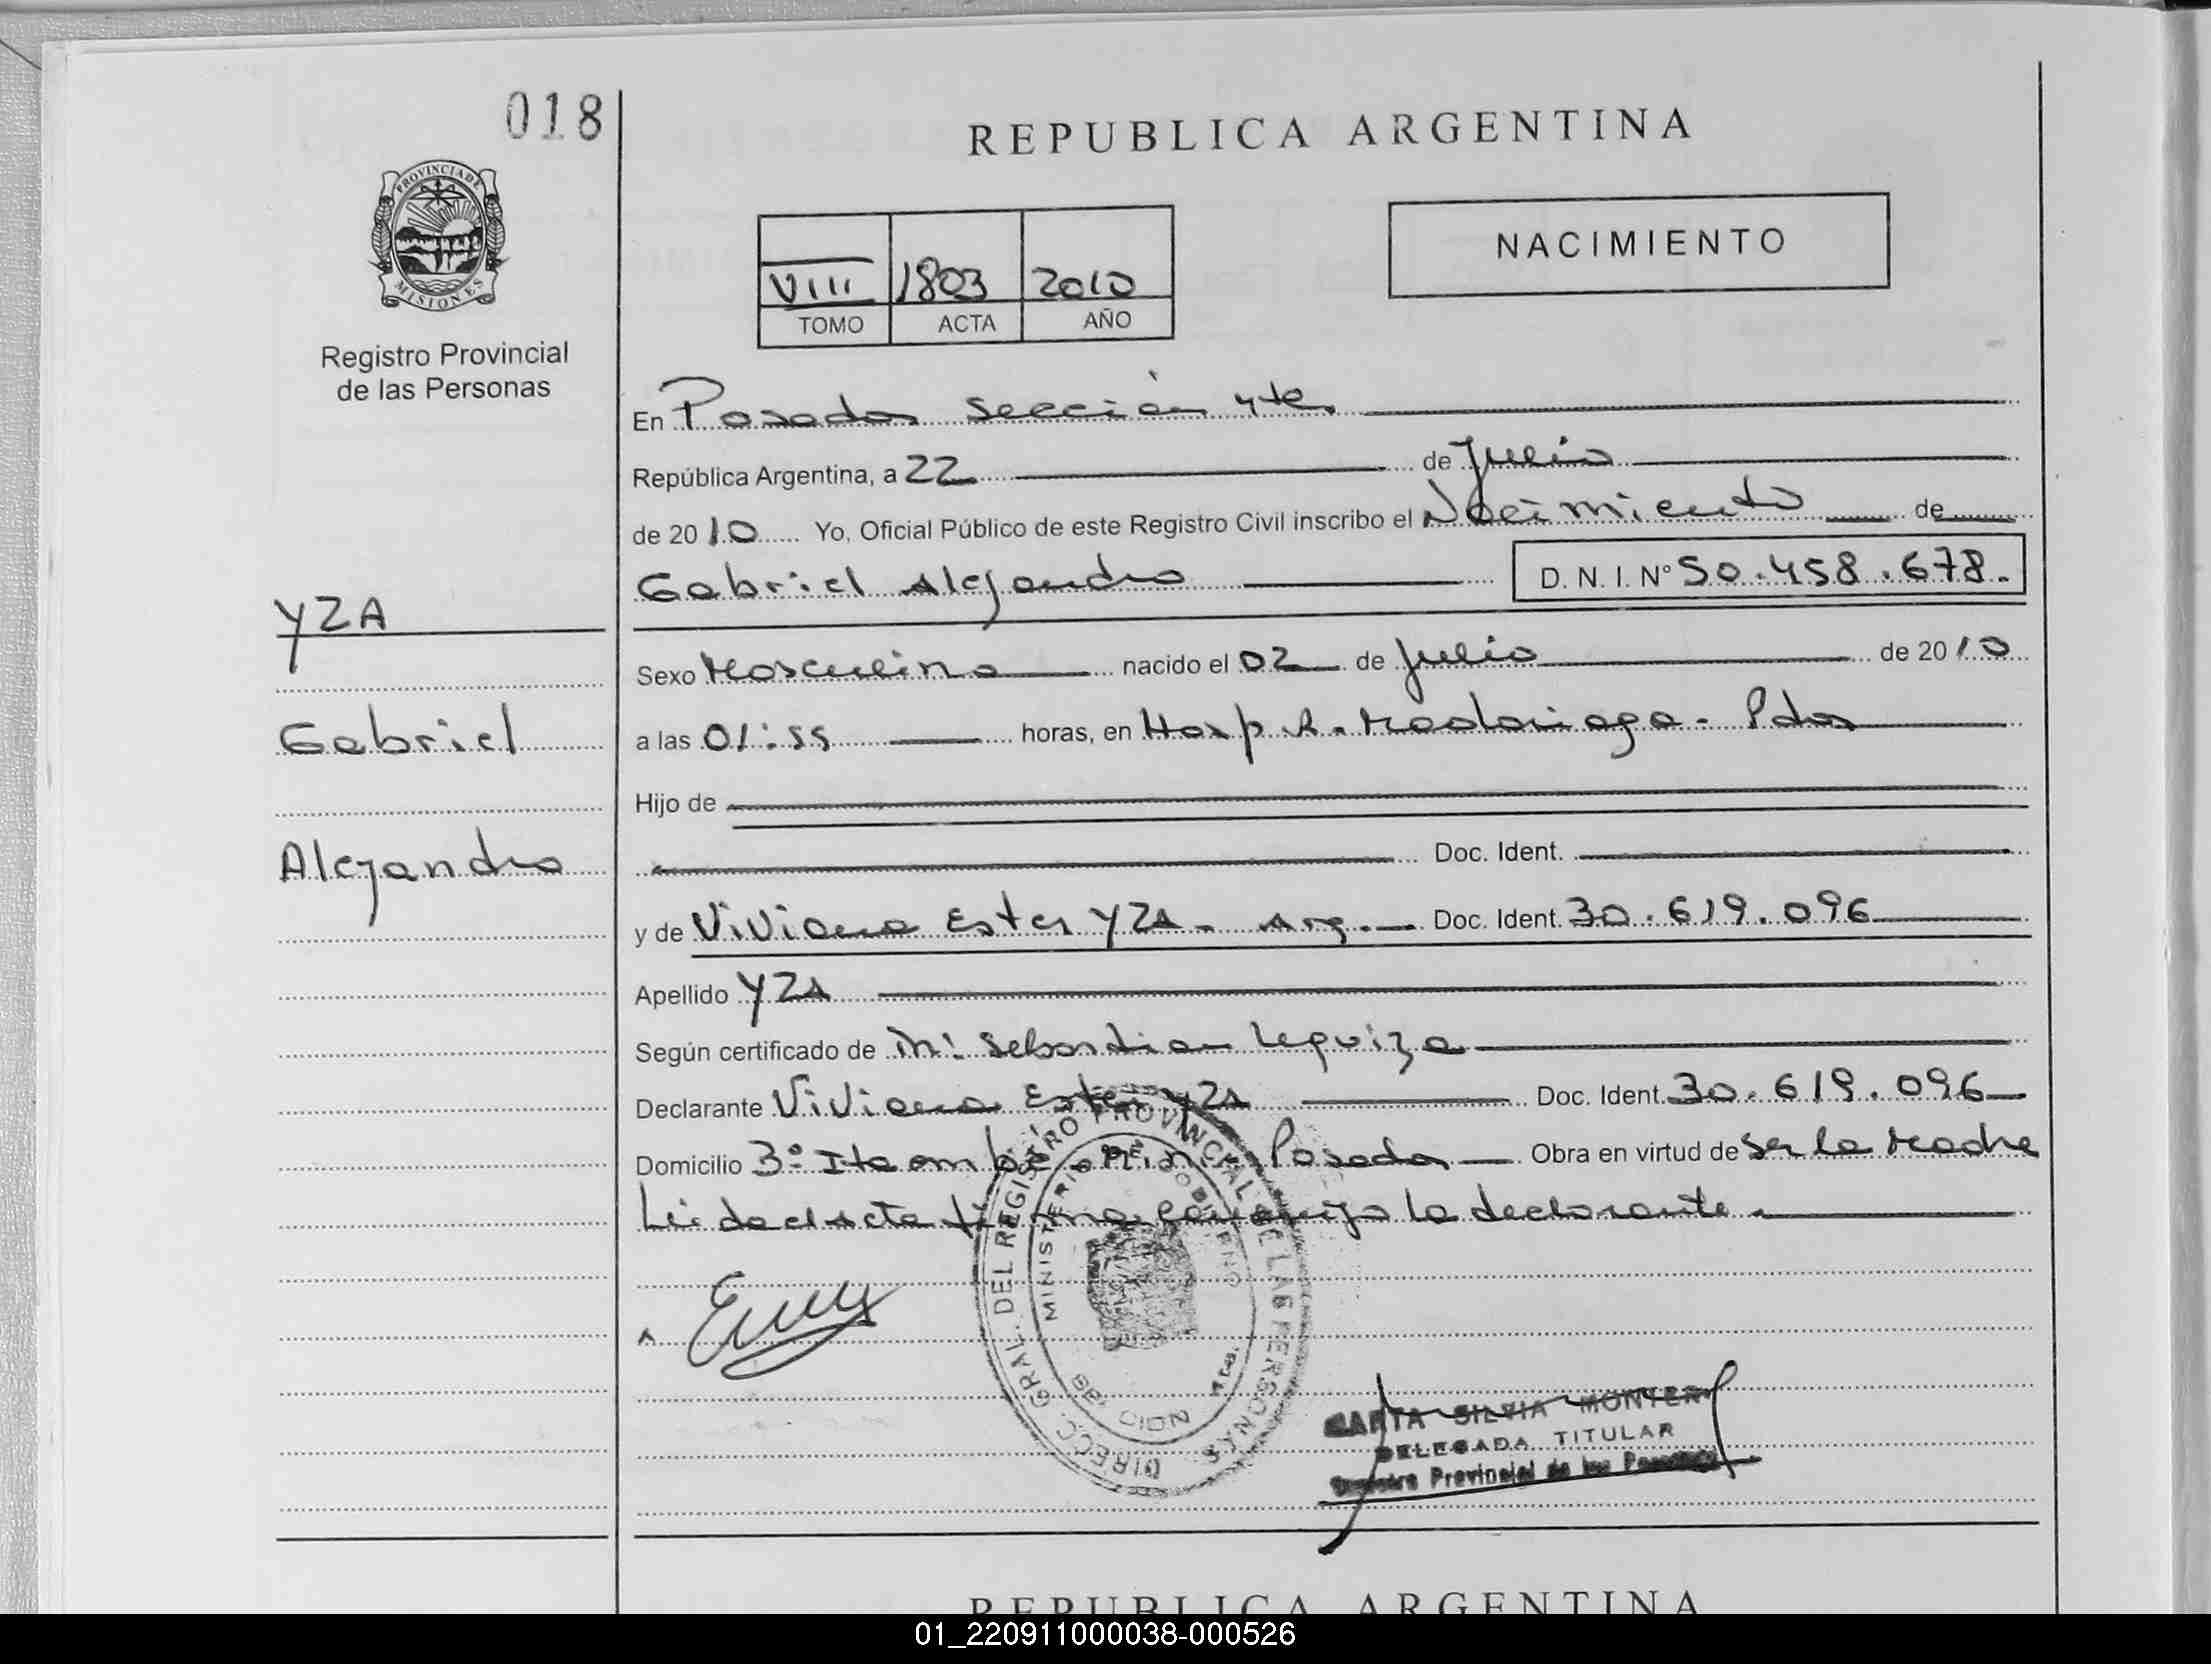 018
REPUBLICA ARGENTINA
PROVINCIA DE
MISIONES
Registro Provincial
de las Personas
VIII 1803 2010
TOMO ACTA AÑO
NACIMIENTO
En Posadas Sección 4te.
República Argentina, a 22 de Julio
de 2010 Yo, Oficial Público de este Registro Civil inscribo el Nacimiento de
Gabriel Alejandro D. N. I. N° 50.458.678.
YZA
Gabriel
Alejandro
Sexo Masculino nacido el 02 de Julio de 2010
a las 01:55 horas, en Hosp. R. Madariaga - Pdas
Hijo de
Doc. Ident.
y de Viviana Ester YZA - Arg. Doc. Ident. 30.619.096
Apellido YZA
Según certificado de Sebastian Leguiza
Declarante Viviana Ester YZA Doc. Ident. 30.619.096
Domicilio 3° Itaembé Miní Posadas Obra en virtud de ser la Madre
Leída el acta firma conmigo la declarante.
DIRECC. GRAL. DEL REGISTRO PROVINCIAL DE LAS PERSONAS
MINISTERIO DE GOBIERNO
SILVIA MONTERO
DELEGADA TITULAR
Registro Provincial de las Personas
REPUBLICA ARGENTINA
01_220911000038-000526